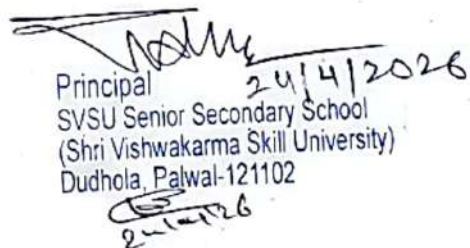 24/4/2026
Principal
SVSU Senior Secondary School
(Shri Vishwakarma Skill University)
Dudhola, Palwal-121102